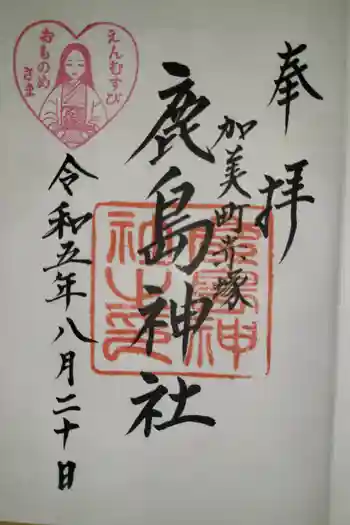 奉拝
加美町米塚
鹿島神社
令和五年八月二十日
えんむすび
おものめ
さま